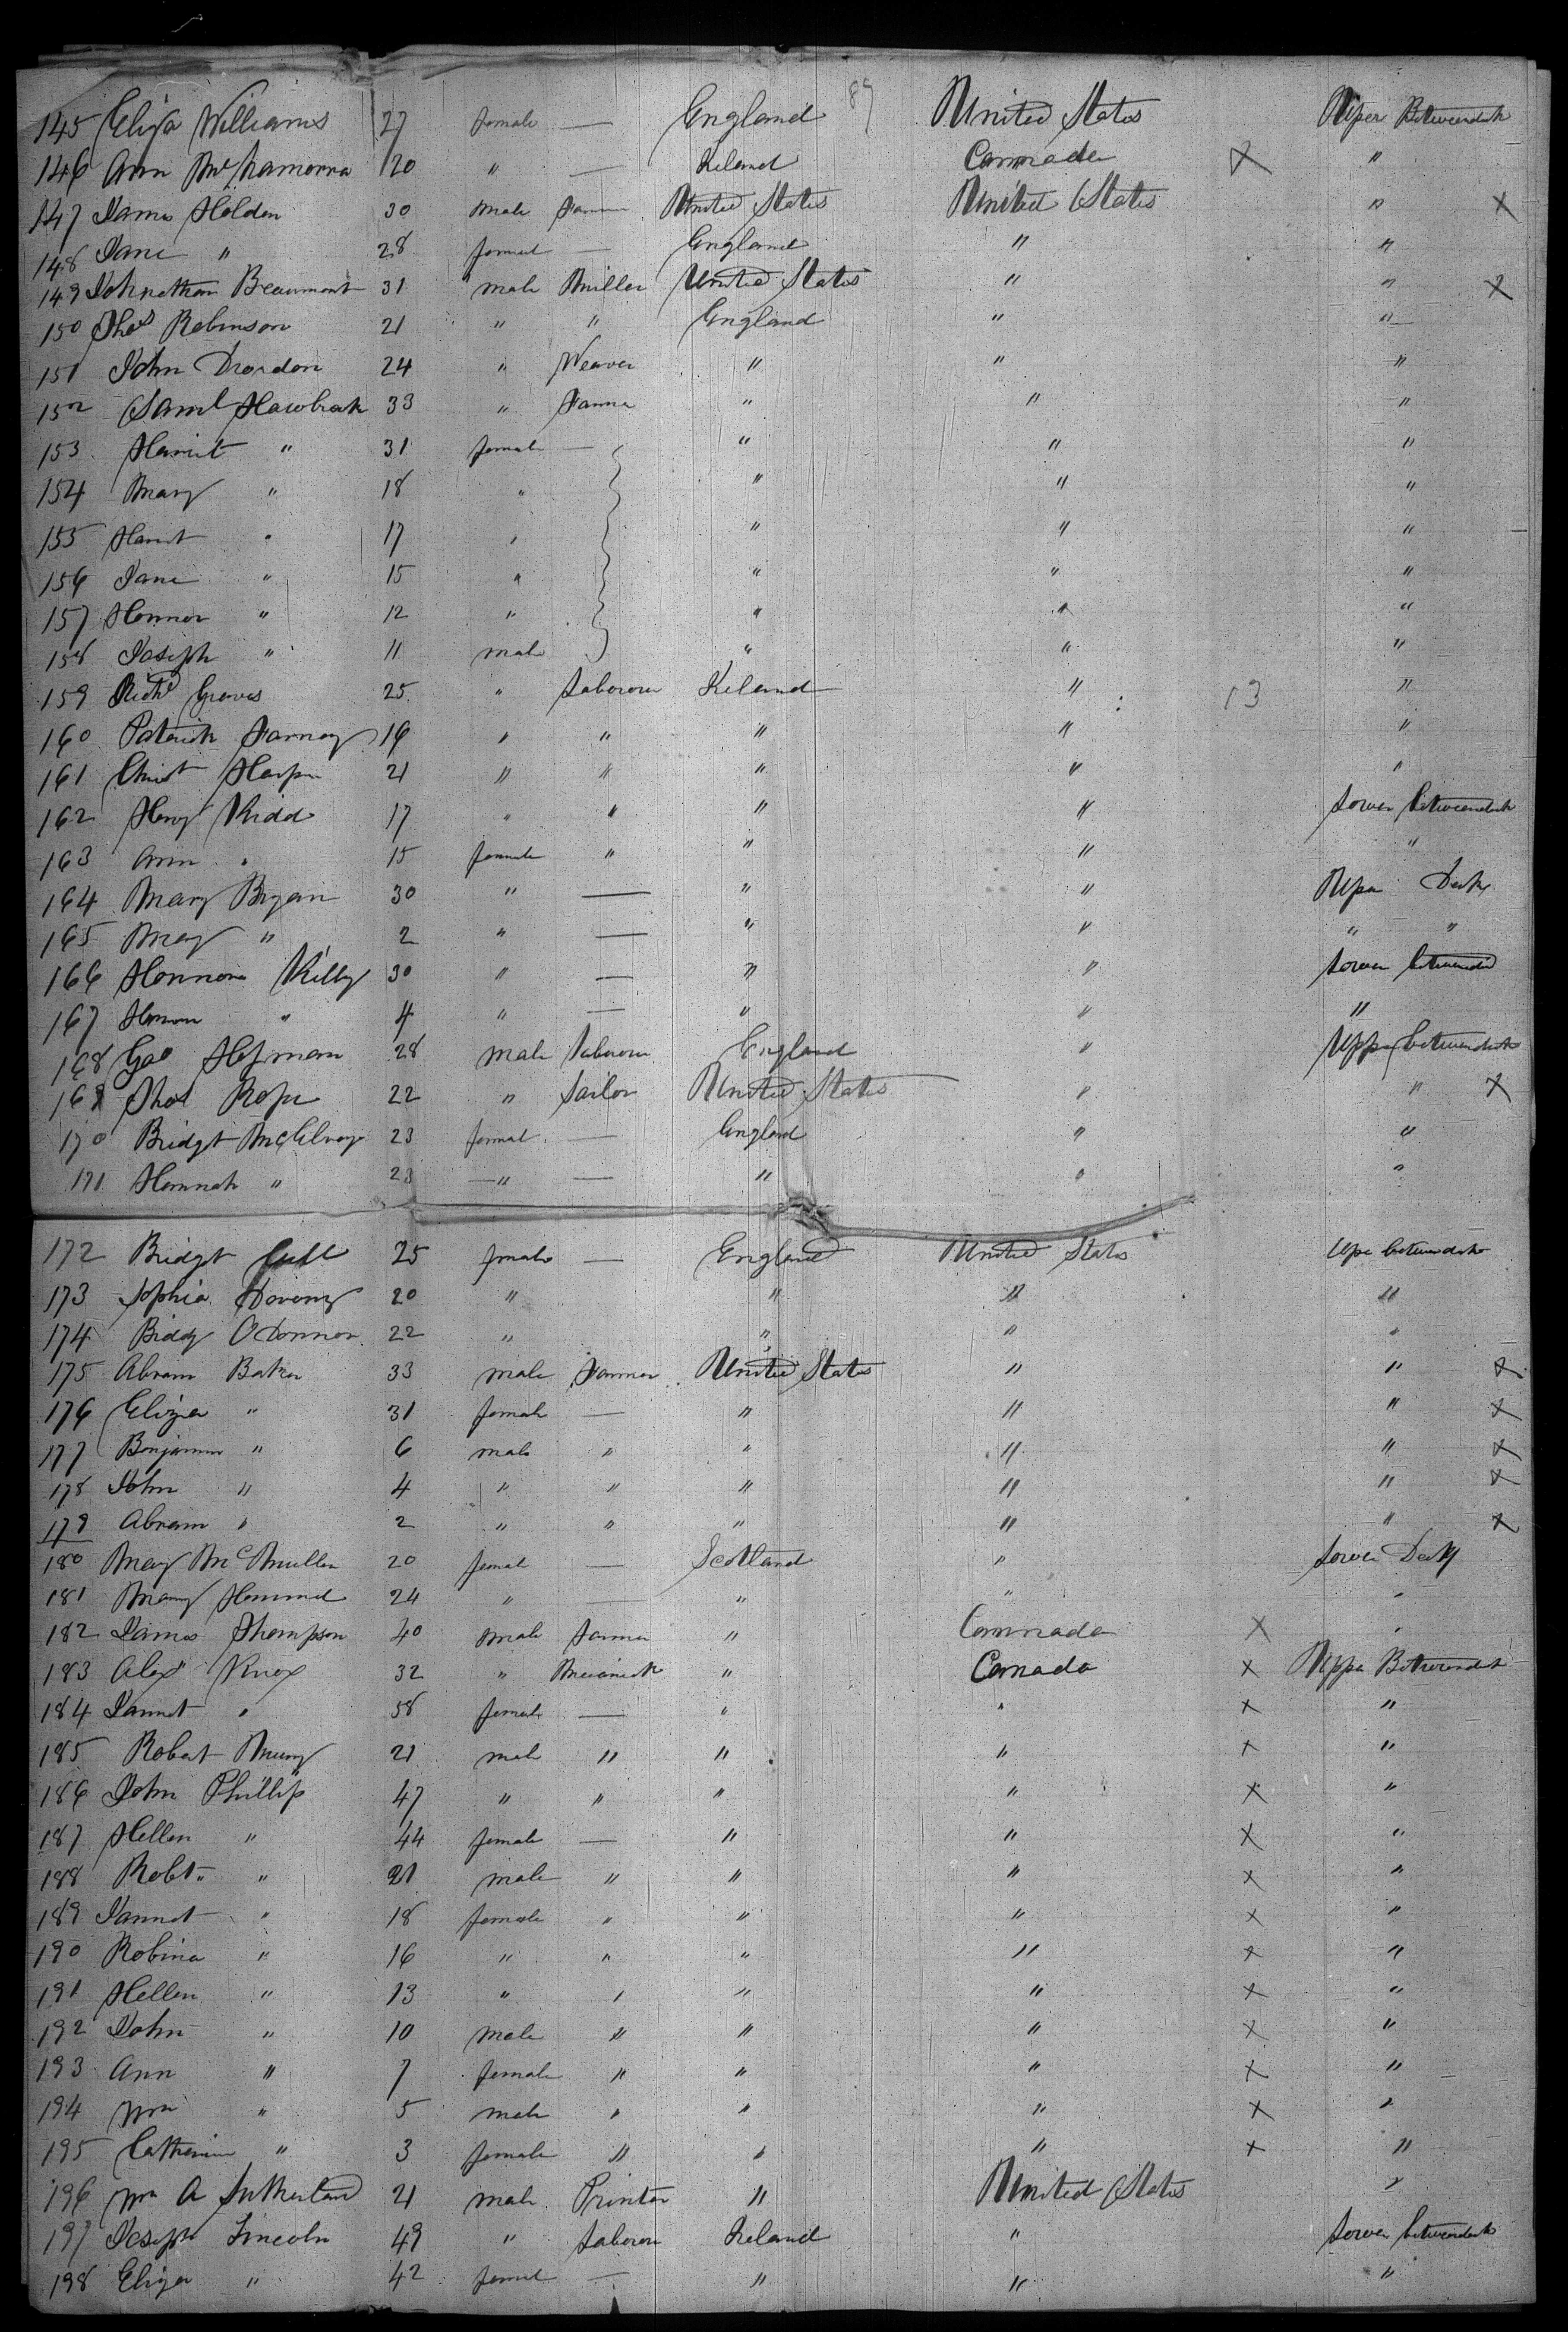 89
145 Eliza Williams 27 female — England United States Upper Betweendeck
146 Ann McNamorra 20 " — Ireland Cannada X "
147 James Holden 30 male Farmer United States United States " X
148 Jane " 28 female — England " "
149 Johnathan Beaumont 31 male Miller United States " " X
150 Thos Robinson 21 " " England " "
151 John Drordon 24 " Weaver " " "
152 Saml 33 " Farmer " " "
153 Harriet " 31 female — " " "
154 Mary " 18 " " " "
155 Harriet " 17 " " " "
156 Jane " 15 " " " "
157 Honnor " 12 " " " "
158 Joseph " 11 male " " "
159 Richd Graves 25 " Laborour Ireland " 13 "
160 Patrick Farney 16 " " " " "
161 Christ Harper 21 " " " " "
162 Henry Kidd 17 " " " " Lower betweendeck
163 Ann " 15 female " " " "
164 Mary Bryan 30 " — " " Upper Deck
165 Mary " 2 " — " " " "
166 Honnora Killy 30 " — " " Lower betweendeck
167 Honnora " 4 " — " " "
168 Geo Hofman 28 male Laborour England " Upper betweendeck
169 Thos Roper 22 " Sailor United States " " X
170 Bridgt McElvoy 23 female — England " "
171 Hannah " 23 — " — " " "
172 Bridgt 25 female — England United States Uper betweendeck
173 Sophia 20 " " " "
174 Biddy OConnor 22 " " " "
175 Abram Baker 33 male Farmer United States " " X
176 Eliza " 31 female — " " " X
177 Benjamin " 6 male " " " " X
178 John " 4 " " " " " X
179 Abram " 2 " " " " " X
180 Mary McMullen 20 female — Scotland " Lower Deck
181 Mary Hammel 24 " — " " "
182 James Thompson 40 male Farmer " Cannada X "
183 Alex Knox 32 " Mecanick " Canada X Upper Betweendeck
184 Jannet " 58 female — " " X "
185 Robert Murry 21 male " " " X "
186 John Phillip 47 " " " " X "
187 Hellen " 44 female — " " X "
188 Robt " 21 male " " " X "
189 Jannet " 18 female " " " X "
190 Robina " 16 " " " " X "
191 Hellen " 13 " " " " X "
192 John " 10 male " " " X "
193 Ann " 7 female " " " X "
194 Wm " 5 male " " " X "
195 Catherine " 3 female " " " X "
196 Wm A Sutherland 21 male Printer " United States "
197 Joseph Lincoln 49 " Laborour Ireland " Lower betweendeck
198 Eliza " 42 female — " " "